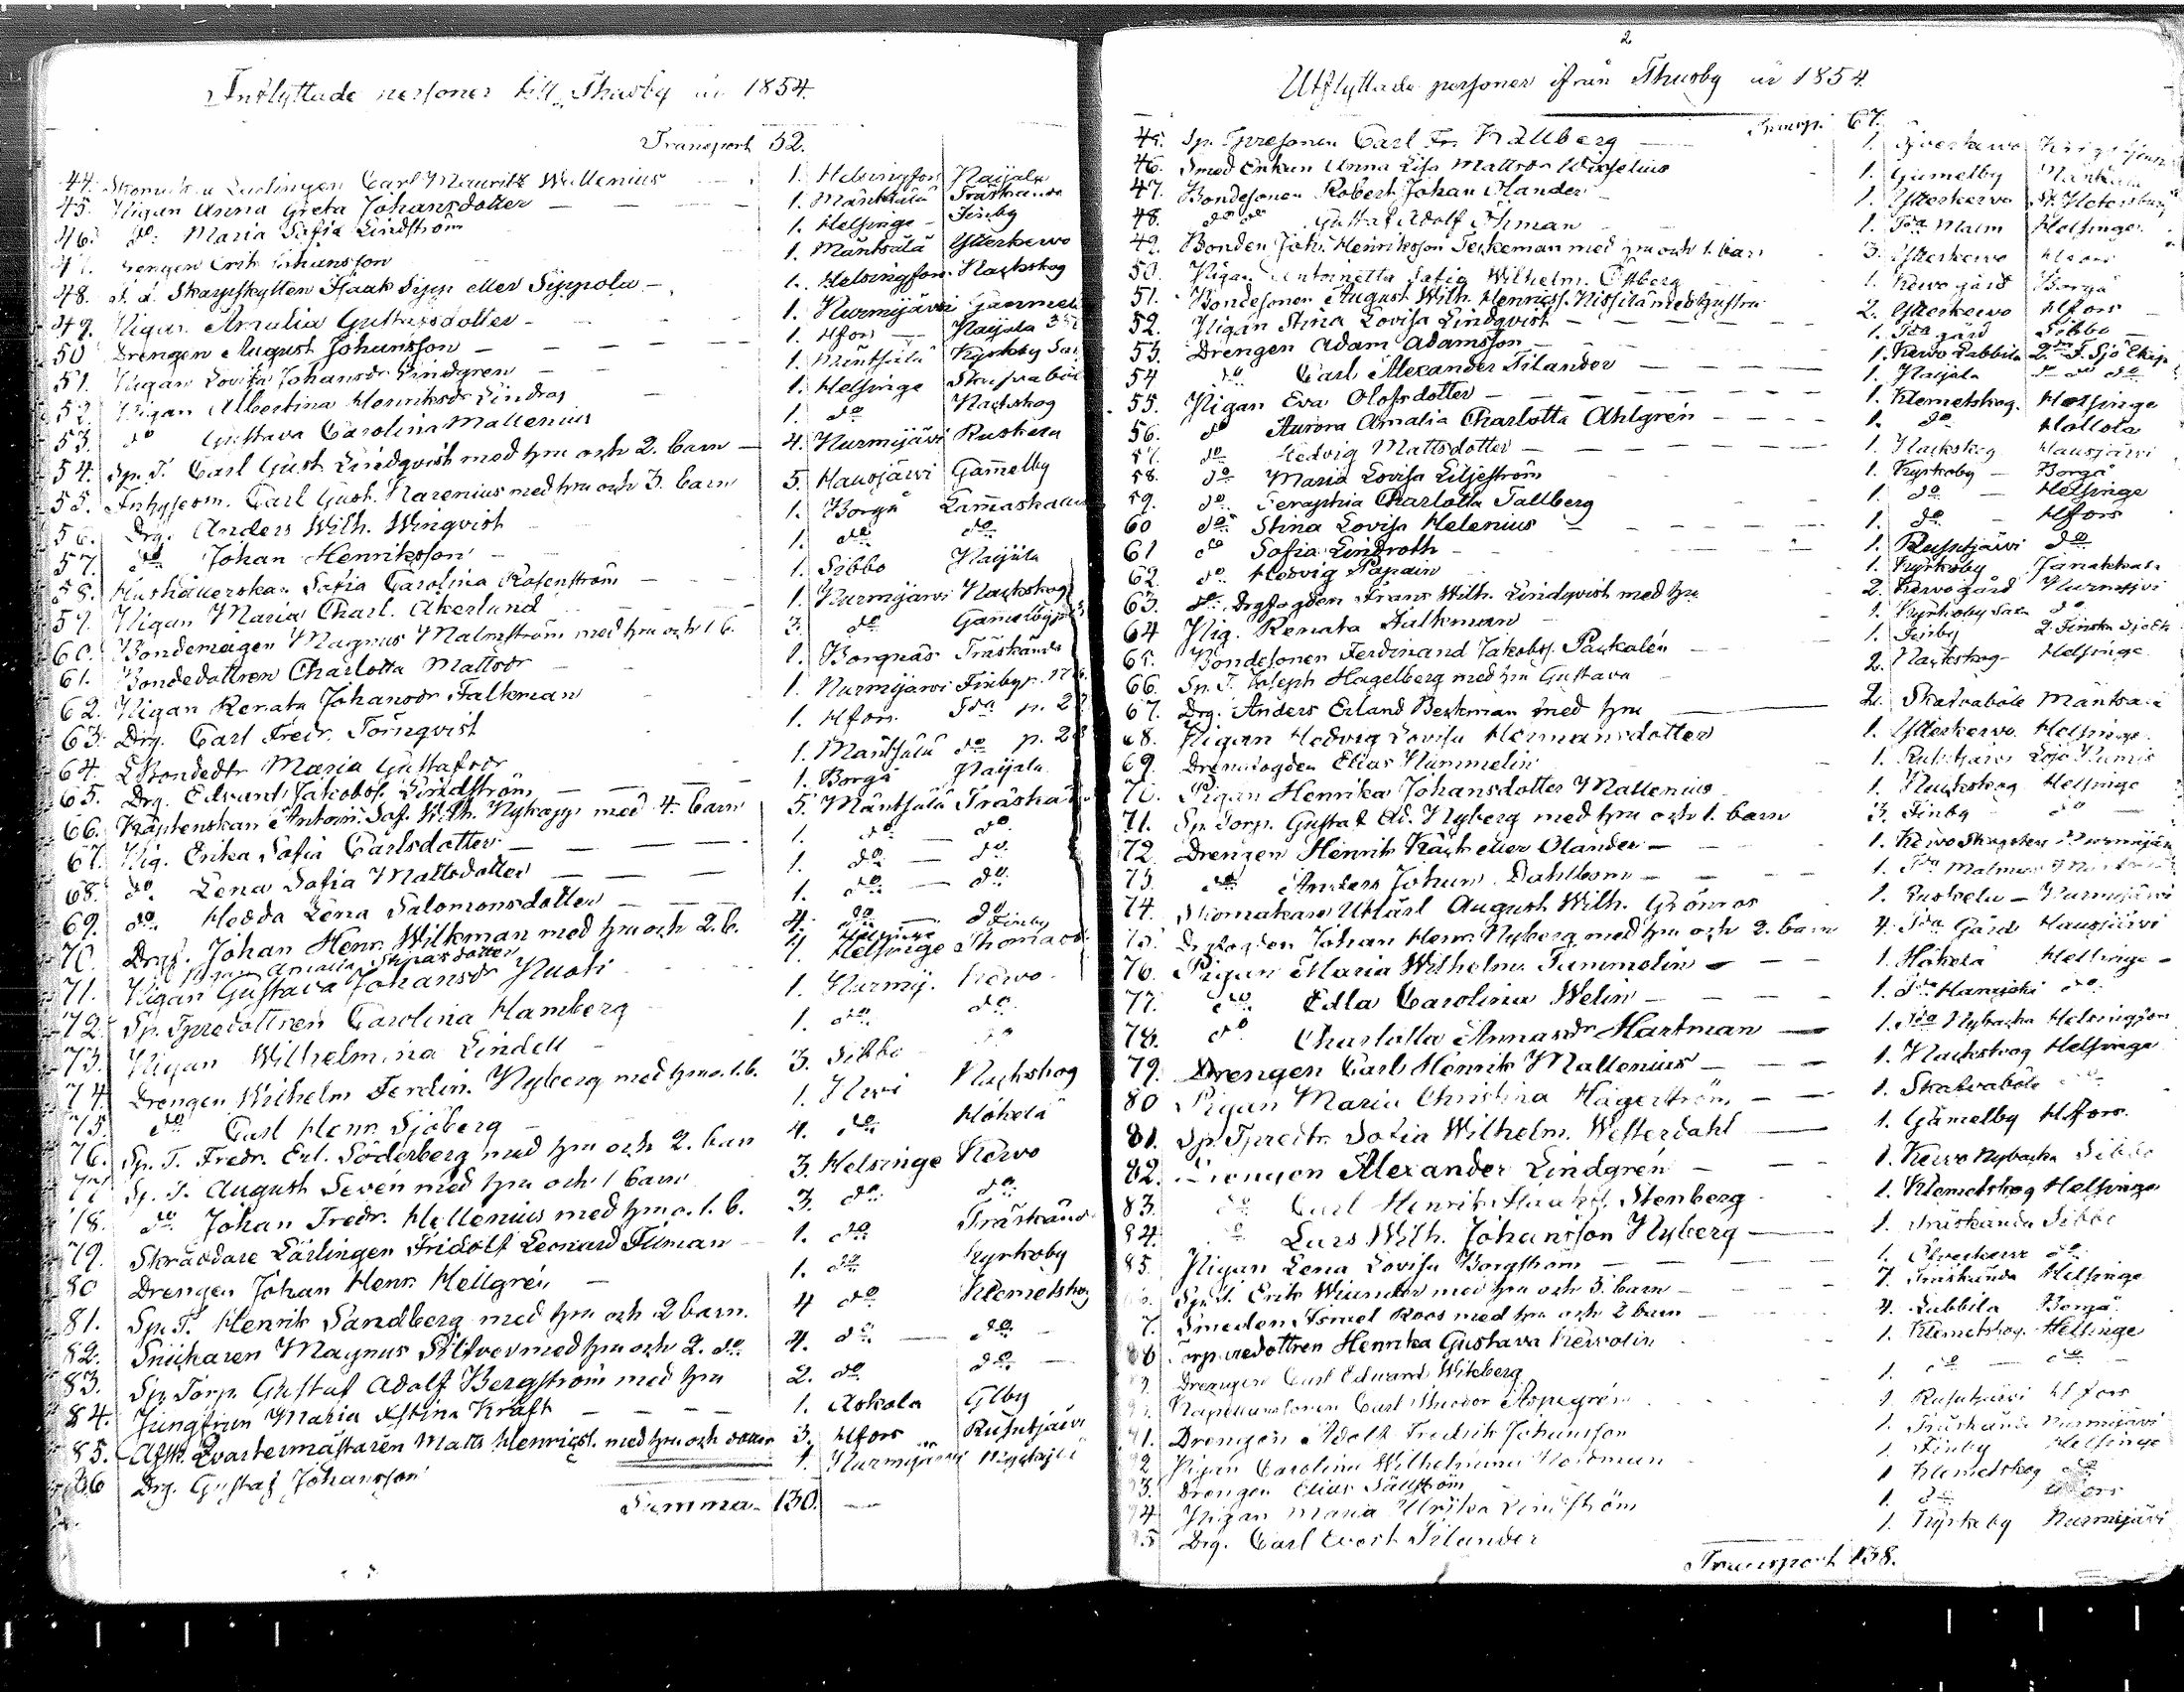 Inflyttade personer till Thusby år 1854.
Transport 52.
44. Skomak. Lärlingen Carl Mauritz Wallenius 1. Helsingfors Paijala
45. Pigan Anna Greta Johansdotter 1. Mäntsälä Träskända
46. do Maria Sofia Lindström 1. Helsinge Finby
47. Drengen Erik Johansson 1. Mäntsälä Ytterkervo
48. Skarpskytten Isaak Sipp eller Sippola 1. Helsingfors Nackskog
49. Pigan Amalia Gustafsdotter 1. Nurmijärvi Gammelby
50 Drengen August Johansson 1. Hfors Paijala
51. Pigan Lovisa Johansdr Lindgren 1. Mäntsälä Kyrkoby
52. Pigan Albertina Henriksdr Lindros 1. Helsinge Skafvaböle
53. do Gustava Carolina Mallenius 1. do Nackskog
54. Sp. T. Carl Gust. Lindqvist med hu och 2. barn 4. Nurmijärvi Ruskela
55. Carl Gust. Narenius med hu och 3. barn 5. Hausjärvi Gammelby
56. Drg. Anders Wilh. Winqvist 1. Borgå
57. do Johan Henriksson 1. do do
58. Hushållerskan Sofia Carolina Rosenström 1. Sibbo Paijala
59. Pigan Maria Charl. Åkerlund 1. Nurmijärvi Nackskog
60. Magnus Malmström med hu och 1 b. 3. do Gammelby
61. Bondedottren Charlotta Mattsdr 1. Borgnäs Träskända
62. Pigan Renata Johansdr Falkman 1. Nurmijärvi Finby
63. Drg. Carl Fredr. Törnqvist 1. Hfors
64. Bondedtr Maria Gustafsdr 1. Mäntsälä do
65. Drg. Edvard Jakobss. Lindström 1. Borgå Paijala
66. Kaptenskan Antoin. Sof. Wilh. Nykopp med 4. barn 5. Mäntsälä Träskända
67. Pig. Erika Sofia Carlsdotter 1. do do
68. do Lena Sofia Mattsdotter 1. do do
69. do Hedda Lena Salomonsdotter 1. do do
70. Drg. Johan Henr. Wilkman med hu och 2. b. 4. do Finby
71. Pigan Gustava Johansdr Nuoti 1. Helsinge
72. Sp. Tpredottren Carolina Hamberg 1. Nurmij. Kervo
73. Pigan Wilhelmina Lindell 1. do do
74. Drengen Wilhelm Ferdin. Nyberg med hu o. 1. b. 3. Sibbo
75. do Carl Henr. Sjöberg 1. Nackskog
76. Sp. T. Fredr. Erl. Söderberg med hu och 2. barn 4. do Hökelä
77 Sp. T. August Seven med hu och 1 barn 3. Helsinge Kervo
78. do Johan Fredr. Hellenius med hu o. 1. b. 3. do do
79. Skräddare Lärlingen Fridolf Leonard Filman 1. do Träskända
80 Drengen Johan Henr. Hellgrén 1. do Kyrkoby
81. Sp. T. Henrik Sandberg med hu och 2 barn. 4 do Klemetskog
82. Snickaren Magnus Silfver med hu och 2. do 4. do do
83. Sp. Torp. Gustaf Adolf Bergström med hu 2. do do
84. Jungfrun Maria Kraft 1. Askola Glby
85. Afsk. Qvartermästaren Matts Henricss. med hu och dotter 3. Hfors Rusutjärvi
86 Drg. Gustaf Johansson 1. Nurmijärvi
Summa 130.
2
Utflyttade personer ifrån Thusby år 1854.
Transp. 67.
45. Sp. Tpresonen Carl Fr. Hällberg 1.
46. Smed Enkan Anna Lisa Mattsdr Wixselius 1. Gammelby
47. Bondesonen Robert Johan Olander 1. Ytterkervo St. Petersburg
48. do do Gustaf Adolf Öhman 1. Malm Helsinge
49. Bonden Joh. Henriksson med hu och 1. barn 3. Ytterkervo Hfors
50. Pigan Antoinetta Sofia Wilhelm. Östberg 1. Kervo gård Borgå
51. Bondesonen August Wilh. Henricss. med hustru 2. Ytterkervo Hfors
52. Pigan Stina Lovisa Lindqvist 1. gård Sibbo
53. Drengen Adam Adamsson 1. Kervo Labbila
54 do Carl Alexander Silander 1. Paijala do do do
55. Pigan Eva Olofsdotter 1. Klemetskog. Helsinge
56. do Aurora Amalia Charlotta Ahlgrén 1. do Hollola
57. do Hedvig Mattsdotter 1. Nackskog Hausjärvi
58. do Maria Lovisa Liljeström 1. Kyrkoby Borgå
59. do Seraphia Charlotta Tallberg 1. do Helsinge
60 do Stina Lovisa Helenius 1. do Hfors
61 do Sofia Lindroth 1. Rusutjärvi do
62. do Hedvig 1. Kyrkoby Janakkala
63. Drgfogden Frans Wilh. Lindqvist med hu 2. Kervo gård Nurmijvi
64 Pig. Renata Falkman 1. Kyrkoby
65. Bondesonen Ferdinand Jakobss. 1. Finby
66. Sp. T. Joseph Hagelberg med hu Gustava 2. Nackskog Helsinge
67. Drg. Anders Erland Beckman med hu 2. Skafvaböle Mäntsälä
68. Pigan Hedvig Lovisa Hermansdotter 1. Ytterkervo Helsinge
69. Drengfogden Elias Nummelin 1. Rusutjärvi
70. Pigan Henrika Johansdotter Mallenius 1. Nackskog Helsinge
71. Sp. Torp. Gustaf Ad. Nyberg med hu och 1. barn 3. Finby do
72. Drengen Henrik eller Olander 1. Kervo
73. do Anders Johan Dahlbom 1.
74. Skomakare August Wilh. Grönros 1. Ruskela Nurmijärvi
75. Drgfogden Johan Henr. Nyberg med hu och 2. barn 4. Gård Hausjärvi
76. Pigan Maria Wilhelm. Tammelin 1. Hökelä Helsinge
77. do Edla Carolina Welin 1. do
78. do Charlotta Annasdr Hartman 1. Nybacka Helsingfors
79. Drengen Carl Henrik Mallenius 1. Nackskog Helsinge
80 Pigan Maria Christina Hägerström 1. Skafvaböle do
81. Sp. Tpredtr. Sofia Wilhelm. Westerdahl 1. Gammelby Hfors.
82. Drengen Alexander Lindgrén 1. Kervo Nybacka Sibbo
83. do Carl Henrik Isaakss. Stenberg 1. Klemetskog Helsinge
84. do Lars Wilh. Johansson Nyberg 1. Träskända Sibbo
85. Pigan Lena Lovisa Borgström 1. do
Sp. T. Erik med hu och 5. barn 7. Träskända Helsinge
7. Smeden Ismel Roos med hu och 2 barn 4. Labbila Borgå
Torparedottren Henrika Gustava Kervolin 1. Klemetskog. Helsinge
Drengen Carl Edward Witeberg 1. do do
Carl Theodor Aspegrén 1. Rusutjärvi Hfors
91. Drengen Adolf Fredrik Johansson 1. Träskända Nurmijärvi
92 Pigan Carolina Wilhelmina 1. Finby Helsinge
93. Drengen Elias Sällström 1 Klemetskog do
94 Pigan Maria Ulrika Lindström 1. do
95 Drg. Carl Silander 1. Kyrkoby Nurmijärvi
Transport 138.